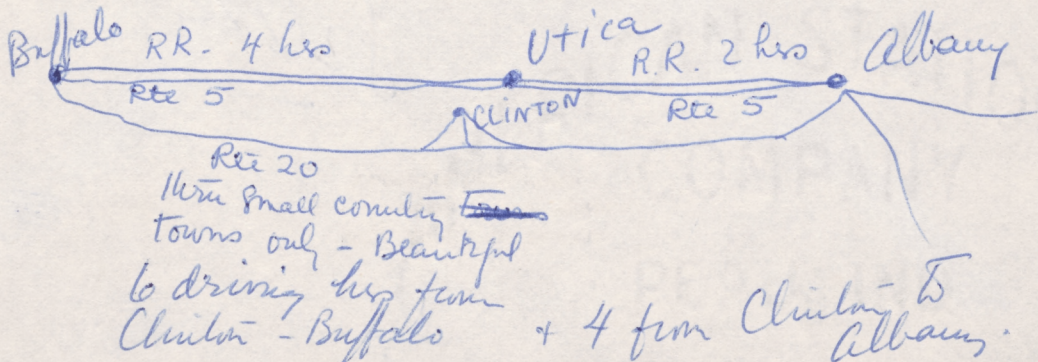 Buffalo RR. 4 hrs Utica R.R. 2 hrs Albany
Rte 5 CLINTON Rte 5
Rte 20
thru small country
towns only - Beautiful
6 driving hrs from
Clinton - Buffalo + 4 from Clinton to
Albany.